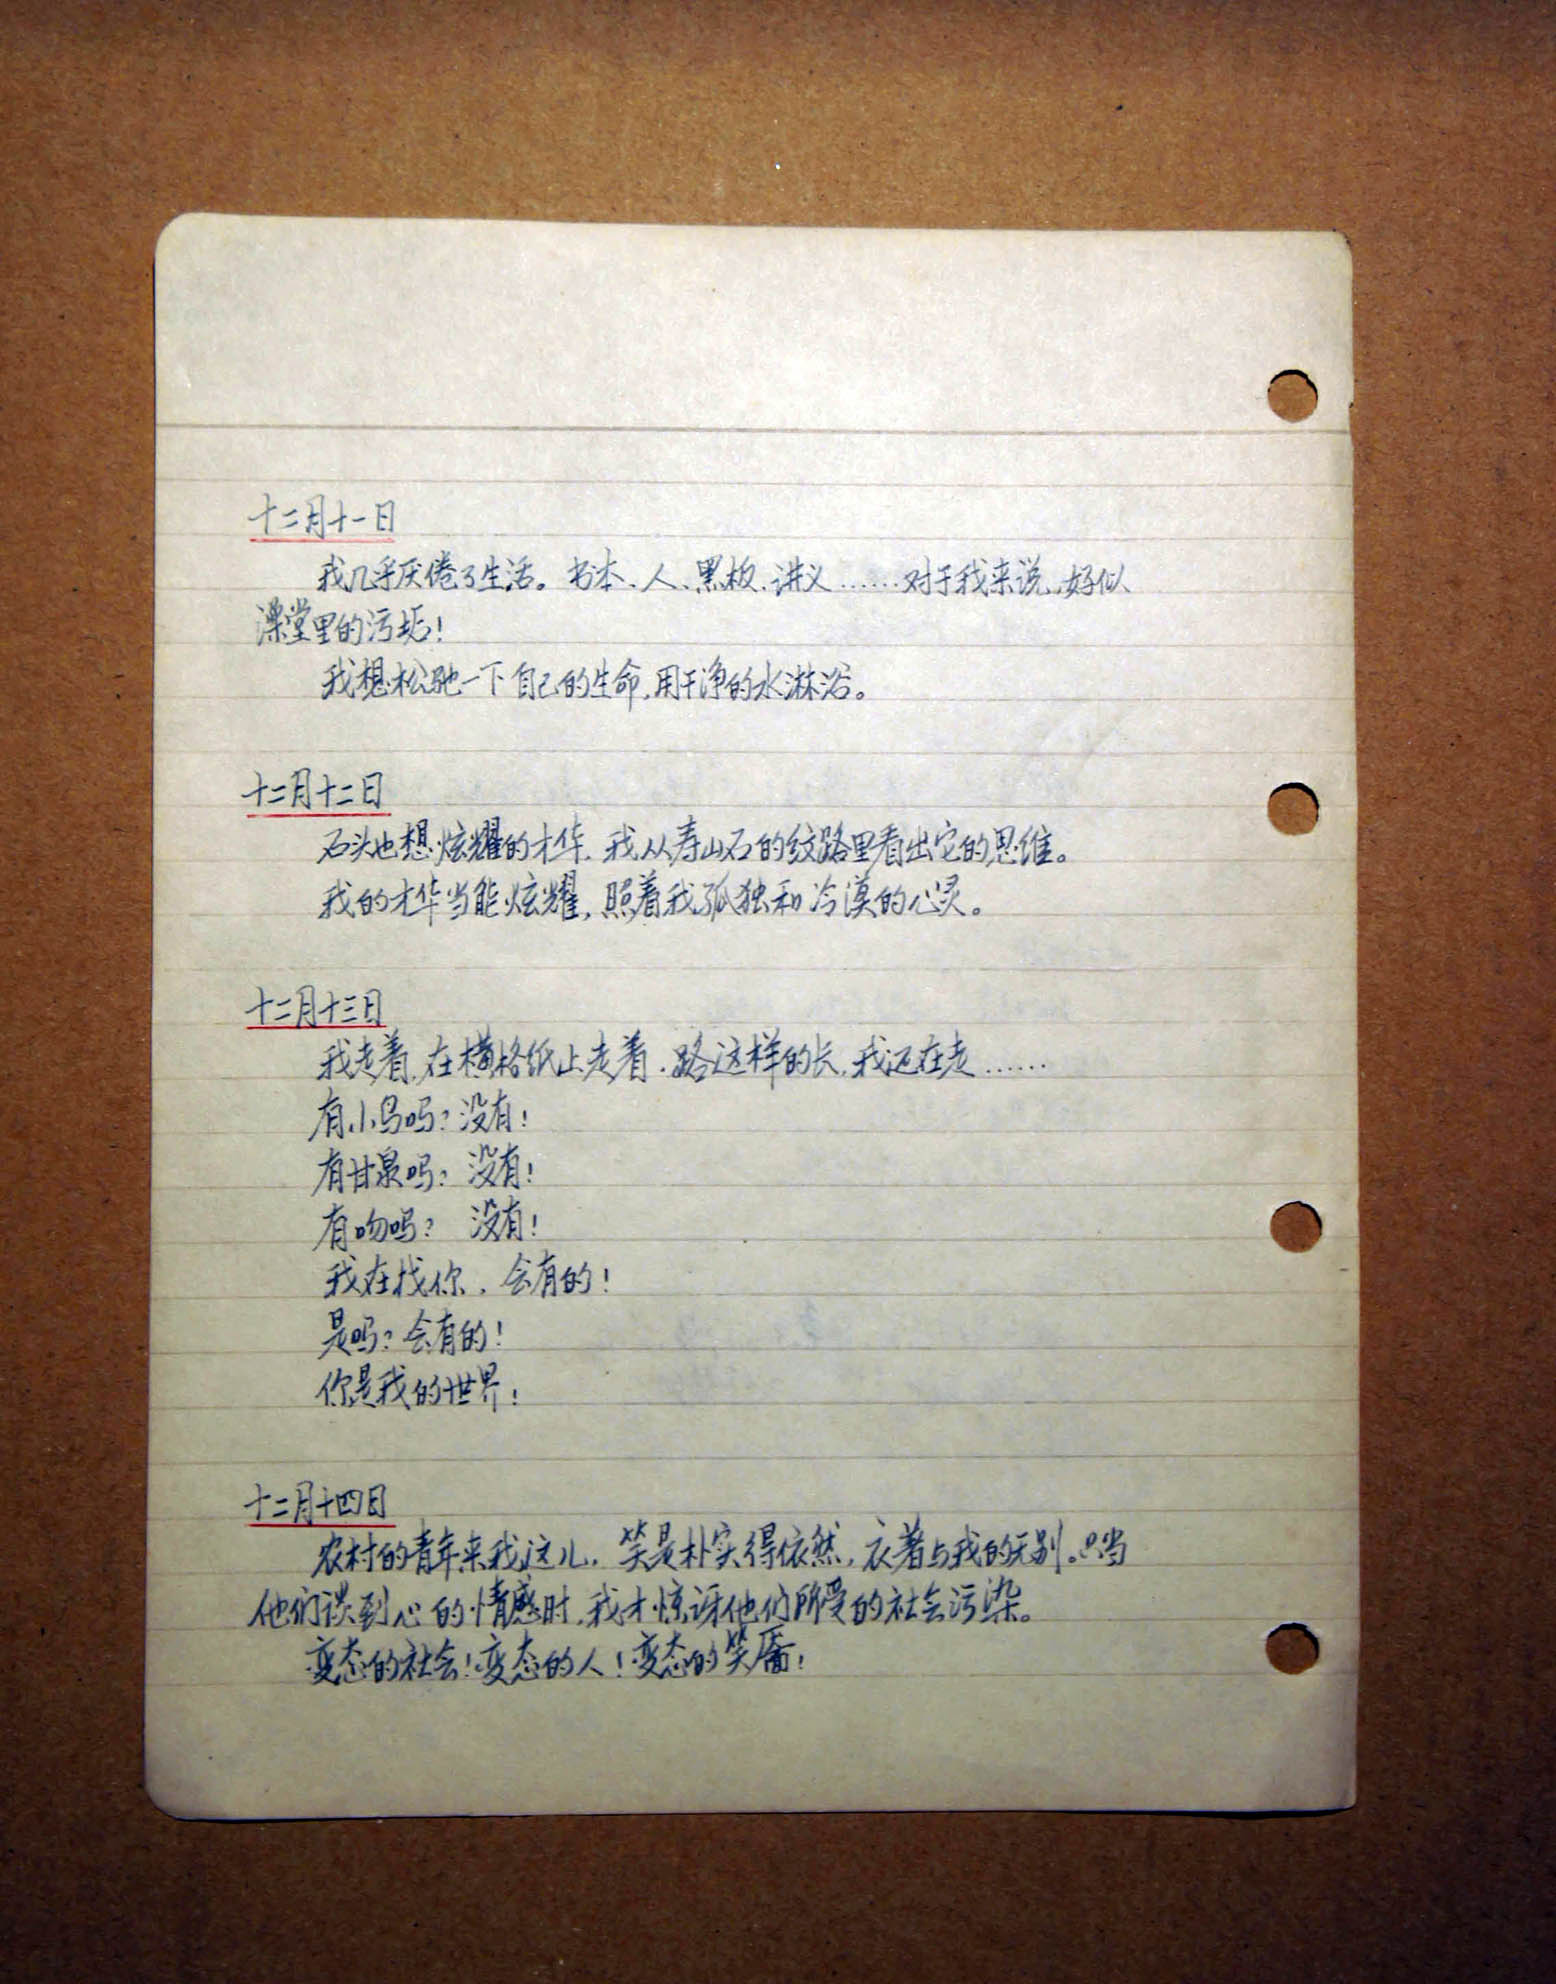 十二月十一日
我几乎厌倦了生活。书本、人、黑板、讲义……对于我来说，好似
澡堂里的污垢！
我想松驰一下自己的生命，用干净的水淋浴。
十二月十二日
石头也想炫耀的才华，我从寿山石的纹路里看出它的思维。
我的才华当能炫耀，照着我孤独和冷漠的心灵。
十二月十三日
我走着，在横格纸上走着，路这样的长，我还在走……
有小鸟吗？没有！
有甘泉吗？没有！
有吻吗？没有！
我在找你，会有的！
是吗？会有的！
你是我的世界！
十二月十四日
农村的青年来我这儿，笑是朴实得依然，衣著与我的无别。只当
他们谈到心的情感时，我才惊讶他们所受的社会污染。
变态的社会！变态的人！变态的笑靥！